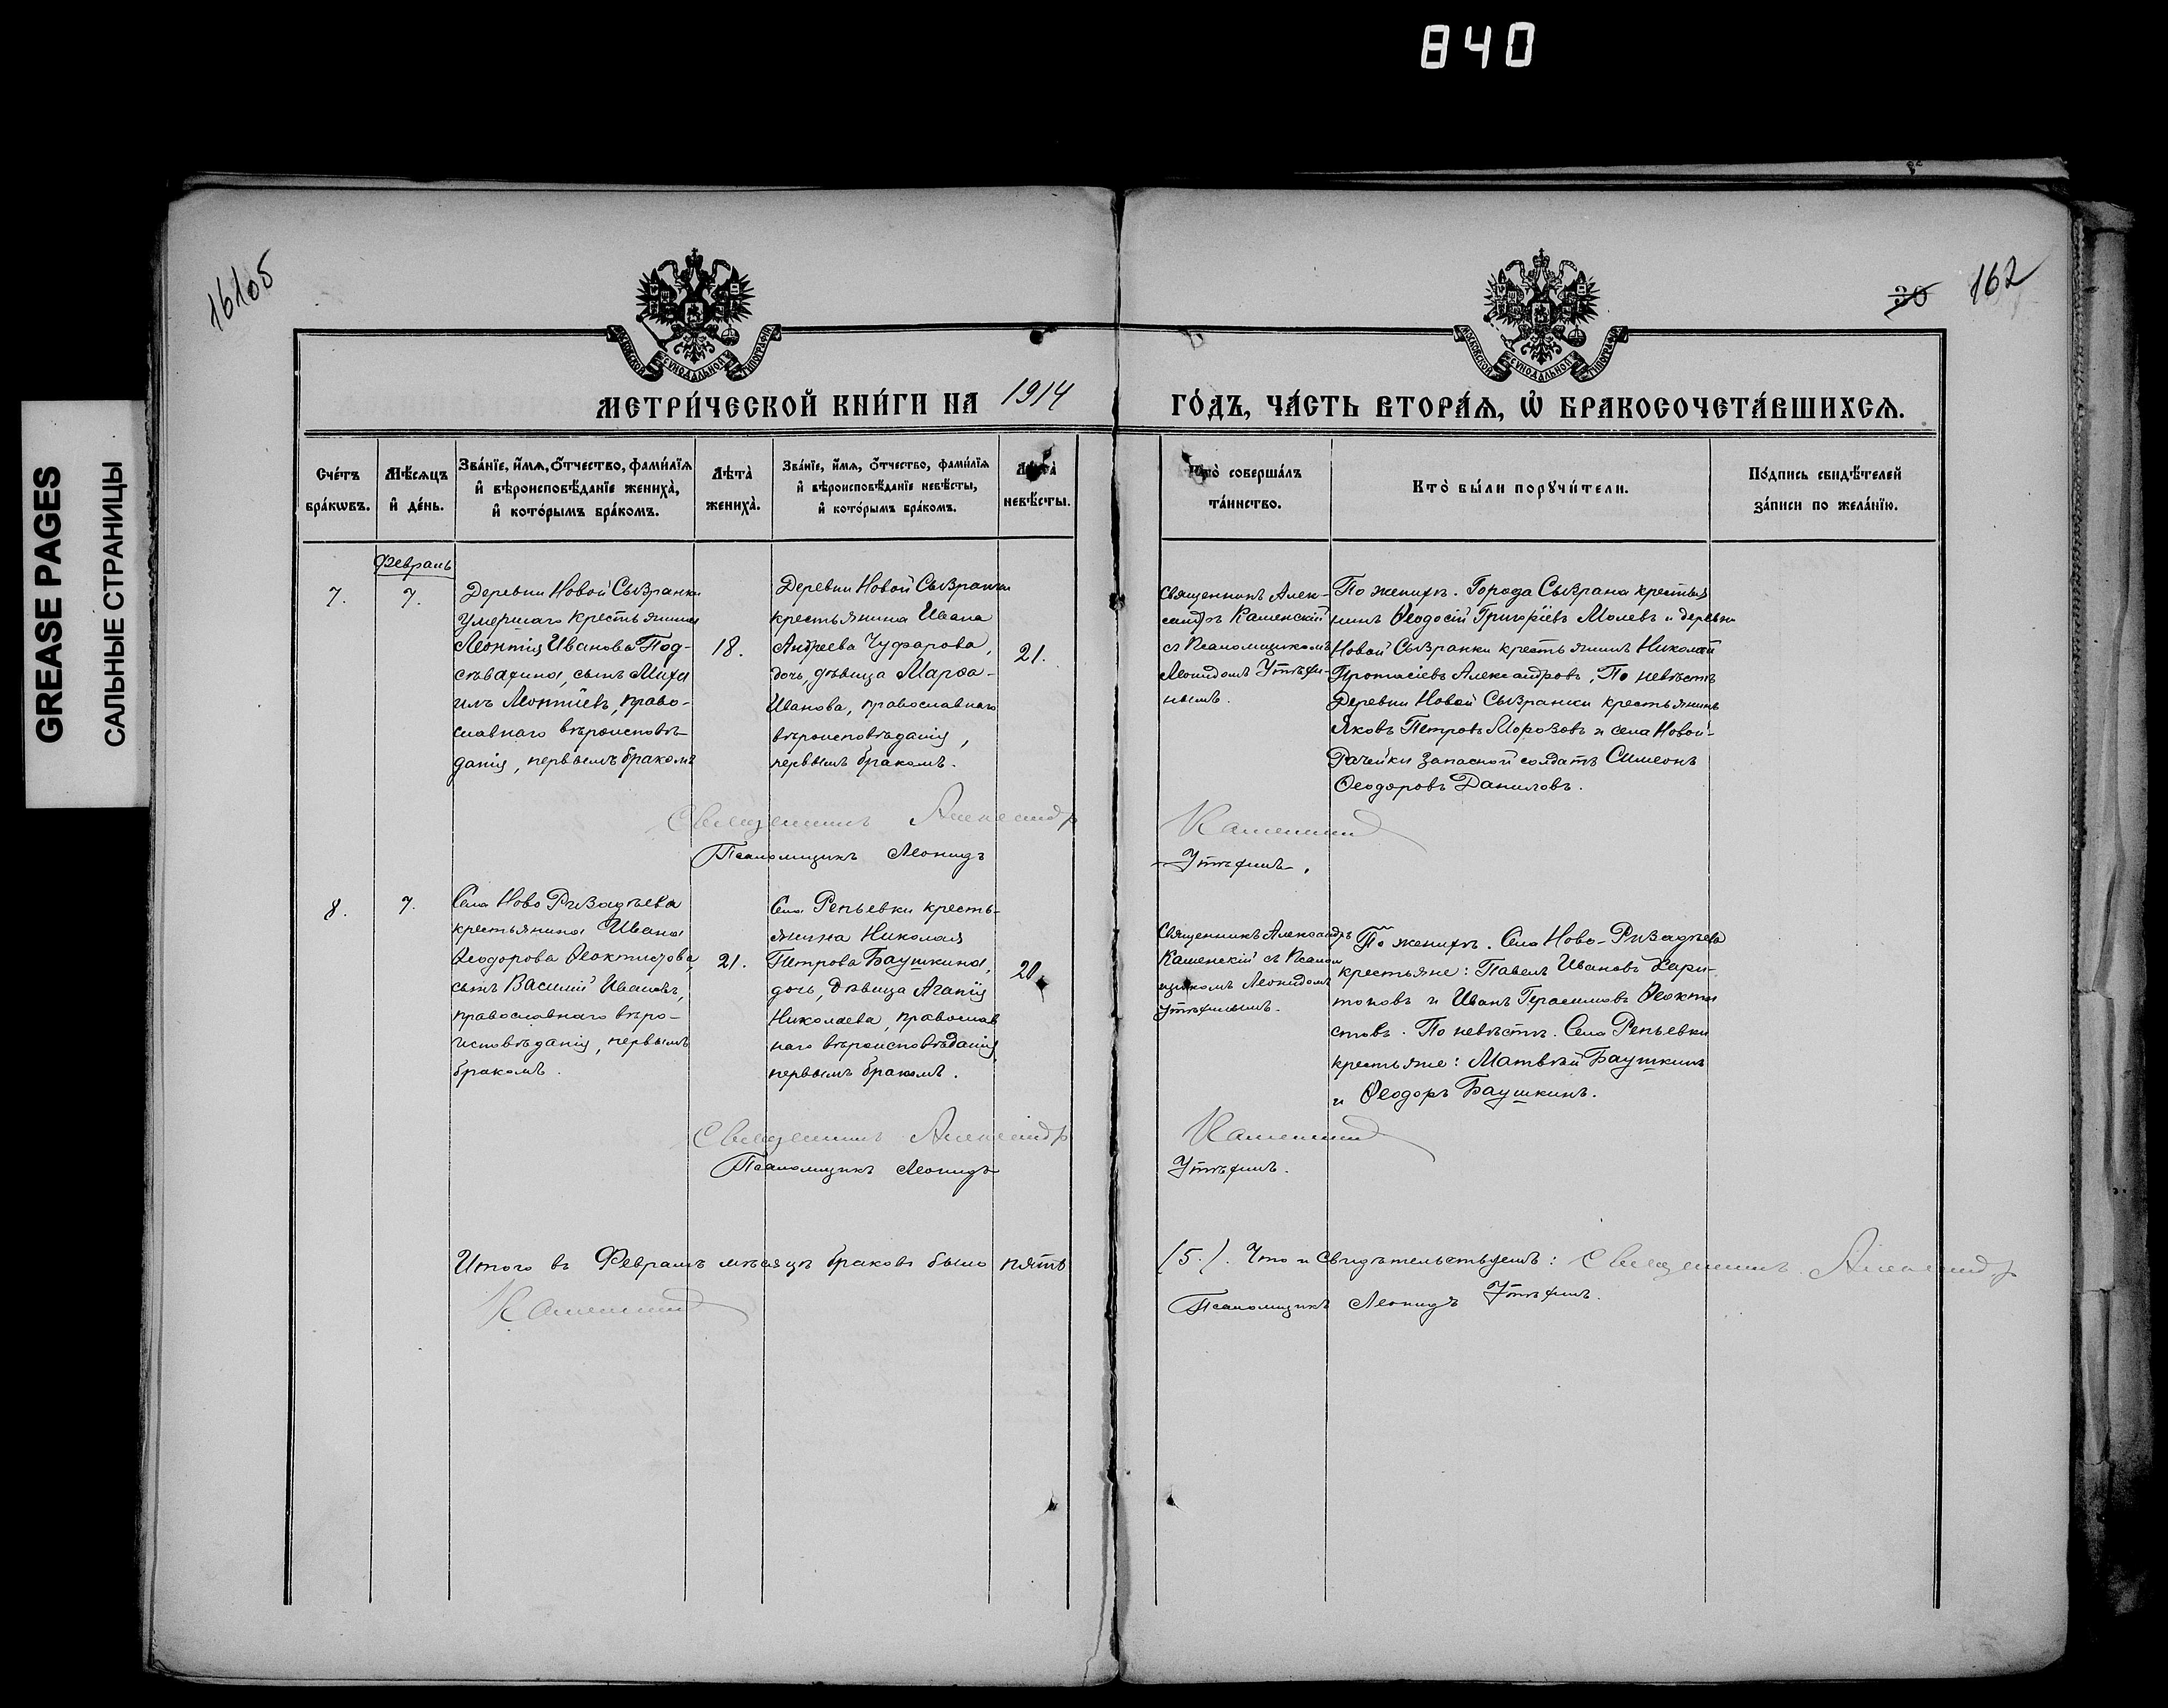 840
GREASE PAGES
САЛЬНЫЕ СТРАНИЦЫ
162
30
МОСКОВСКОЙ СѴНОДАЛЬНОЙ ТИПОГРАФІИ
МОСКОВСКОЙ СѴНОДАЛЬНОЙ ТИПОГРАФІИ
МЕТРИ́ЧЕСКОЙ КНИ́ГИ НА 1914
ГО́ДЪ, ЧА́СТЬ ВТОРА́Ѧ, Ѡ҆ БРАКОСОЧЕТА́ВШИХСѦ.
Сче́тъ бра́кѡвъ.
Мѣ́сѧцъ и҆ де́нь.
Зва́нїе, и҆́мѧ, ѻ҆́тчество, фами́лїѧ
и҆ вѣроисповѣ́данїе жениха̀,
и҆ кото́рымъ бра́комъ.
Лѣ́та̀ жениха̀.
Зва́нїе, и҆́мѧ, ѻ҆́тчество, фами́лїѧ
и҆ вѣроисповѣ́данїе невѣ́сты,
и҆ кото́рымъ бра́комъ.
Лѣ́та̀ невѣ́сты.
Кто̀ соверша́лъ
та́инство.
Кто̀ бы́ли порꙋчи́тели.
По́дпись свидѣ́телей
за́писи по жела́нїю.
Февраль
7.
7.
Деревни Новой Сызранки
умершаго крестьянина
Леонтія Иванова Под-
сѣвахина, сынъ Миха
илъ Леонтіевъ, право-
славнаго вѣроисповѣ-
данія, первымъ бракомъ
18.
Деревни Новой Сызранки
крестьянина Ивана
Андреева Чуфарова,
дочь, дѣвица Марѳа-
Иванова, православнаго
вѣроисповѣданія,
первымъ бракомъ.
21.
Священникъ Алек-
сандръ Каменскій
съ Псаломщикомъ
Леонидомъ Утѣхи-
нымъ.
По женихѣ. Города Сызрана крестья
нинъ Ѳеодосій Григоріевъ Молевъ и деревни
Новой Сызранки крестьянинъ Николай
Протасіевъ Александровъ, По невѣстѣ
Деревни Новой Сызранки крестьянинъ
Яковъ Петровъ Морозовъ и села Новой-
Рачейки запасной солдатъ Симеонъ
Ѳеодоровъ Даниловъ.
Священникъ Александр Каменскій
Псаломщикъ Леонидъ Утѣхинъ.
8.
7.
Села Ново Ризадѣева
крестьянина Ивана
Ѳеодорова Ѳеоктистова,
сынъ Василій Ивановъ,
православнаго вѣро-
исповѣданія, первымъ
бракомъ.
21.
Села Репьевки кресть-
янина Николая
Петрова Баушкина,
дочь, дѣвица Агапія
Николаева, православ
наго вѣроисповѣданія,
первымъ бракомъ.
20.
Священникъ Александръ
Каменскій съ Псалом
щикомъ Леонидомъ
Утѣхинымъ.
По женихѣ. Села Ново-Ризадѣева
крестьяне: Павелъ Ивановъ Хари-
тоновъ и Иванъ Герасимовъ Ѳеокти
стовъ. По невѣстѣ. Села Репьевки
крестьяне: Матвѣй Баушкинъ
и Ѳеодоръ Баушкинъ.
Священникъ Александр Каменскій
Псаломщикъ Леонидъ Утѣхинъ.
Итого въ Февралѣ мѣсяцѣ браковъ было пять (5.). Что и свидѣтельствуемъ: Священникъ Александр
Каменскій
Псаломщикъ Леонидъ Утѣхинъ.